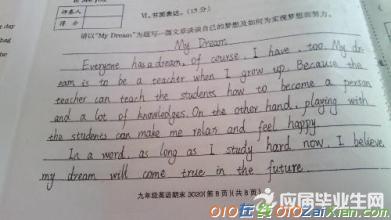 评卷人
得 分
Ⅵ. 书面表达。(15分)
请以"My Dream"为题写一篇文章谈谈自己的梦想及如何为实现梦想而努力。
My Dream
Everyone has a dream, of course, I have, too. My dr-
eam is to be a teacher when I grow up. Because the
teacher can teach the students how to become a person
and a lot of knowledges. On the other hand, playing with
the students can make me relax and feel happy.
In a word, as long as I study hard now, I believe
my dream will come true in the future.
九年级英语期末 第8页(共8页)
应届毕业生网
010在线 010ZaiXian.com